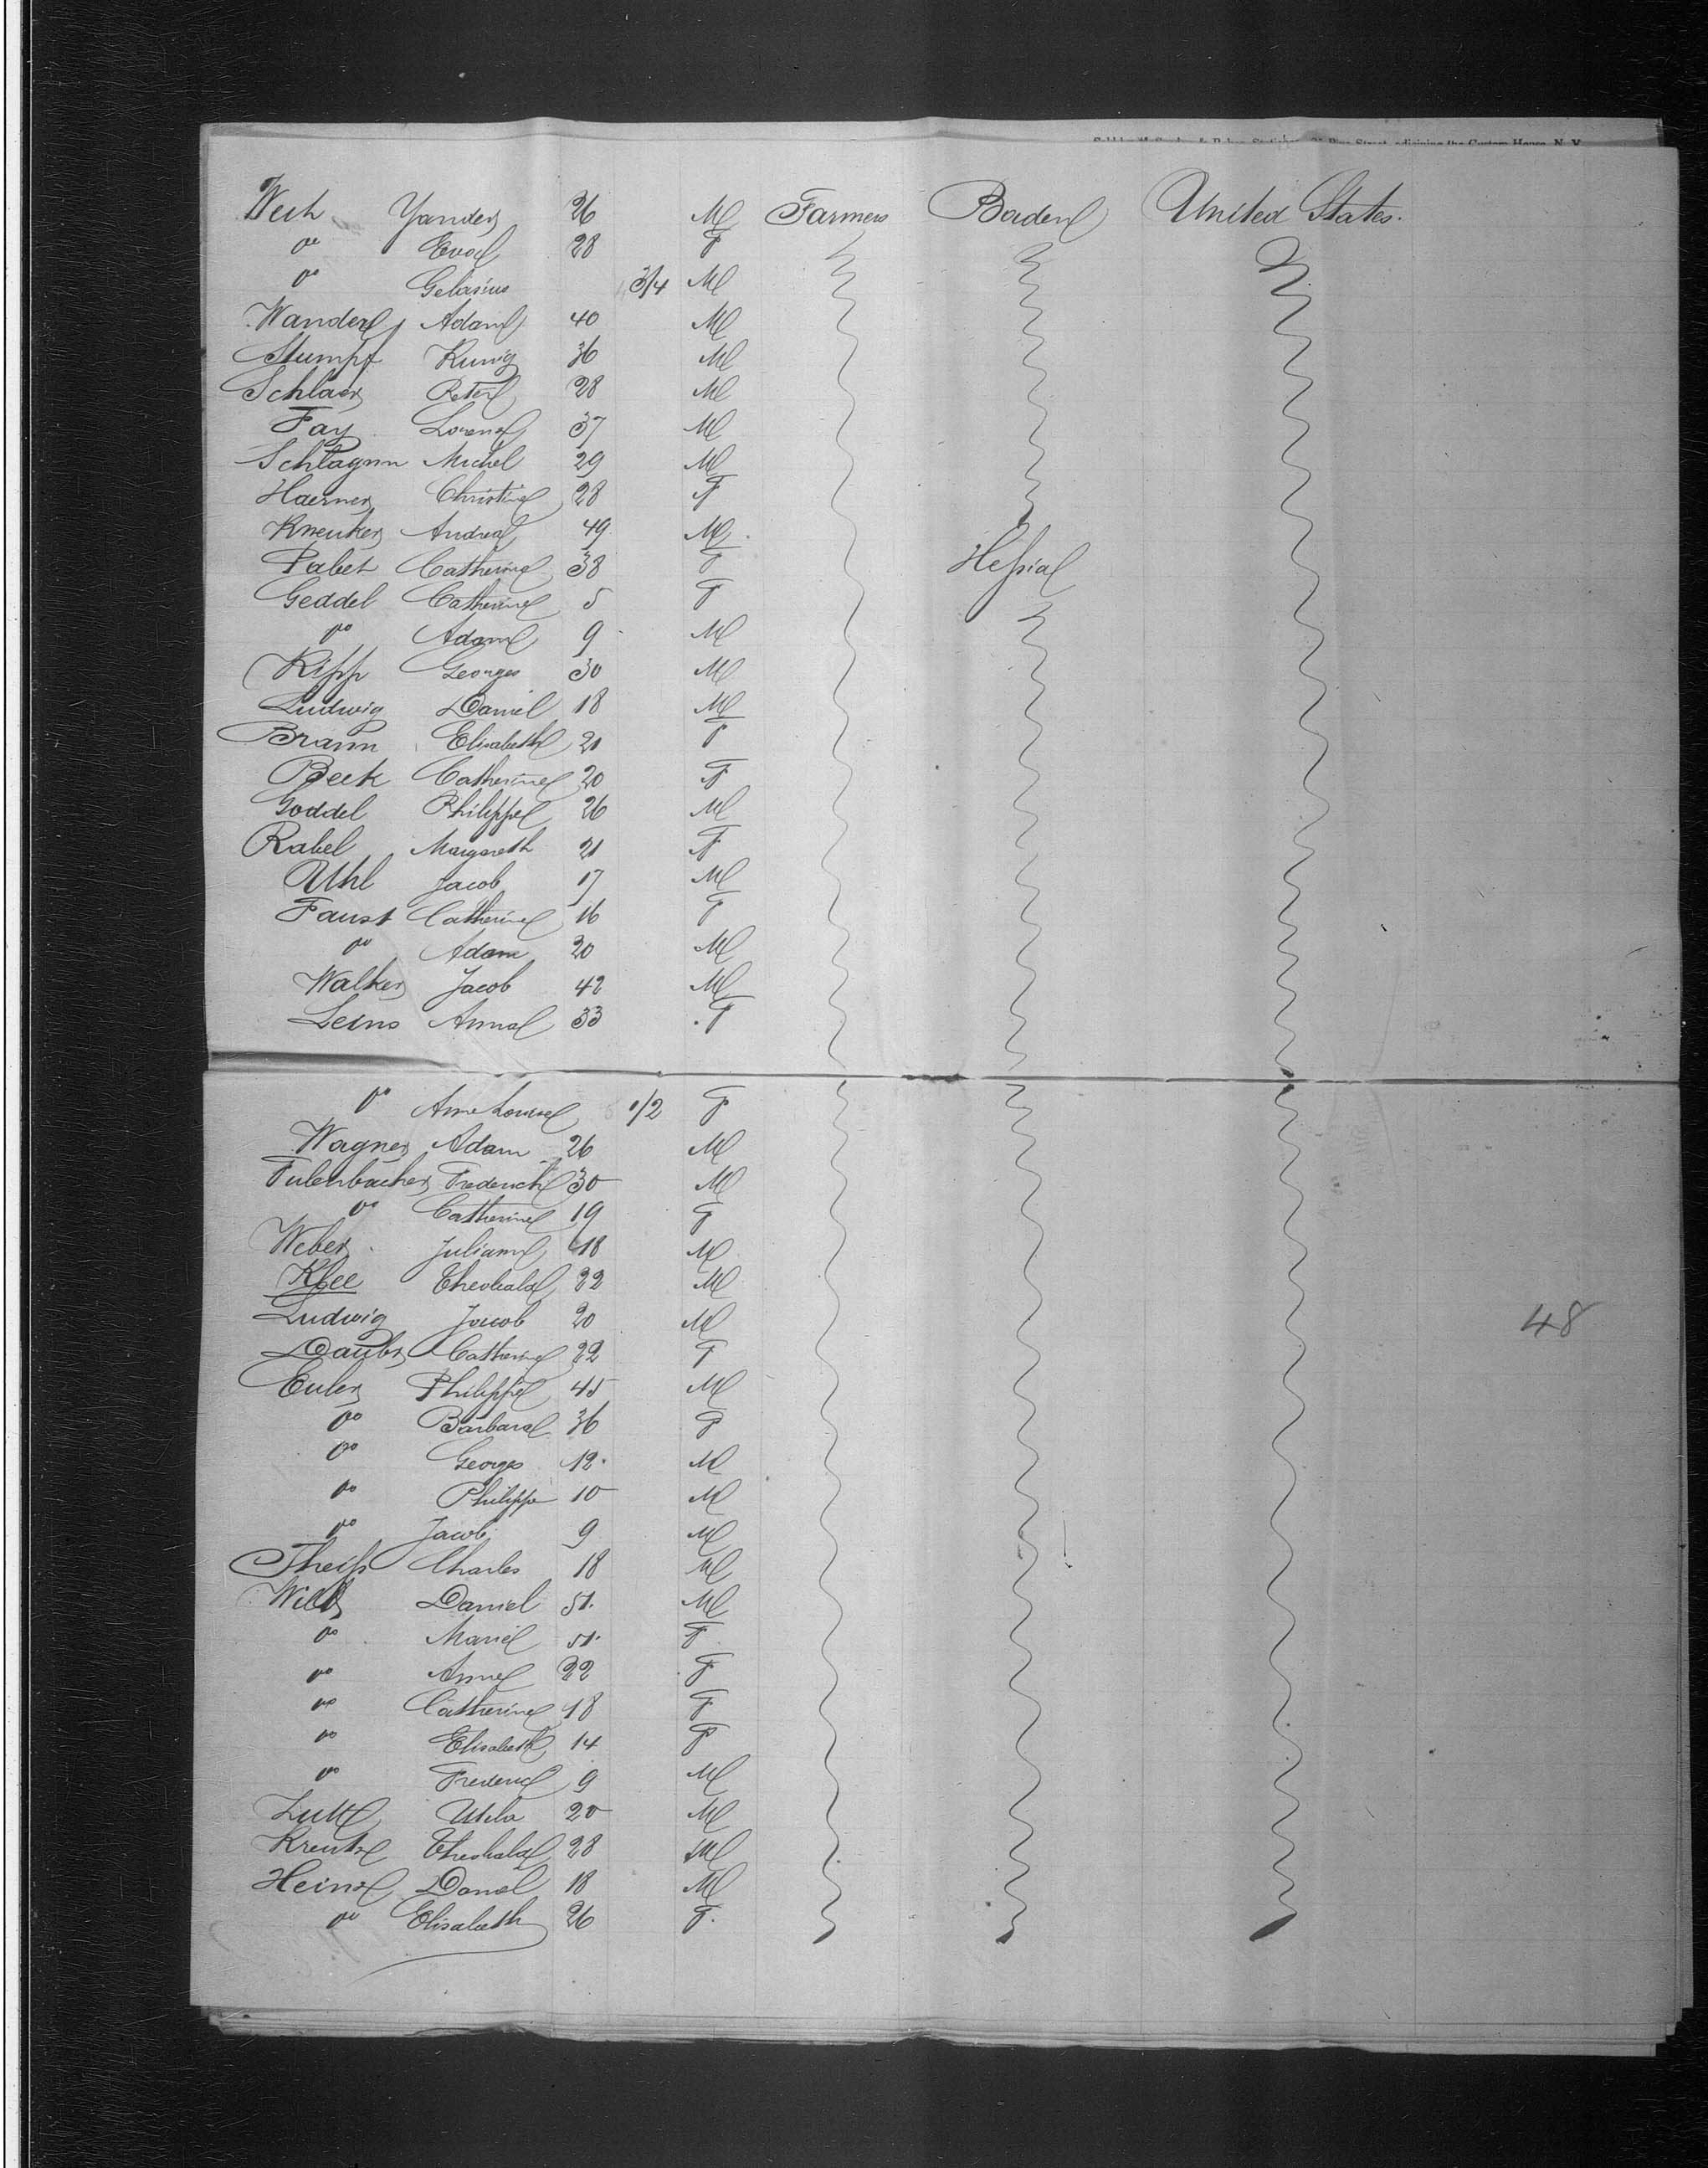 Wech Yander 26 M Farmers Baden United States.
do Eva 28 F
do Gelasius 3/4 M
Wander Adam 40 M
Stumpf Kunig 36 M
Schlaer Peter 28 M
Fay Lorena 37 M
Schlagnn Michel 29 M
Haerner Christine 28 F
Kneuker Andrea 49 M
Pabet Catherine 38 F Hessia
Geddel Catherine 5 F
do Adam 9 M
Kipp Georges 30 M
Ludwig Daniel 18 M
Brann Elisabeth 21 F
Beck Catherine 20 F
Goddel Philippe 26 M
Rabel Margareth 21 F
Uhl Jacob 17 M
Faust Catherine 16 F
do Adam 20 M
Walker Jacob 42 M
Leins Anna 33 F
do Anne Louise 1/2 F
Wagner Adam 26 M
Fulenbacher Frederich 30 M
do Catherine 19 F
Weber Juliane 18 M
Klee Theobald 22 M
Ludwig Jacob 20 M
48
Dauber Catherine 22 F
Euler Philippe 45 M
do Barbara 36 F
do Georges 12 M
do Philippe 10 M
do Jacob 9 M
Theiss Charles 18 M
Will Daniel 51 M
do Marie 51 F
do Anne 22 F
do Catherine 18 F
do Elisabeth 14 F
do Frederic 9 M
20 M
Kreutze Theobald 28 M
Heine Daniel 18 M
do Elisabeth 26 F.